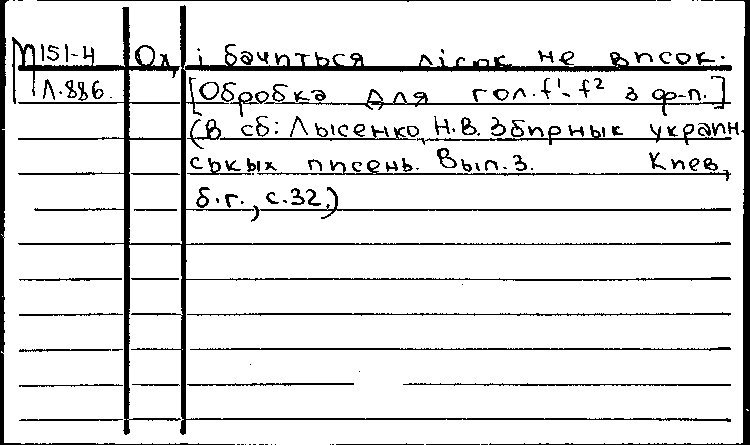 П151-4 Ох, і бачиться лісок не висок.
Л.886. [Обробка для гол. f¹-f² з ф-п.]
(В сб: Лысенко, Н.В. Збирнык украин-
ськых писень. Вып. 3. Киев,
б.г., с.32.)